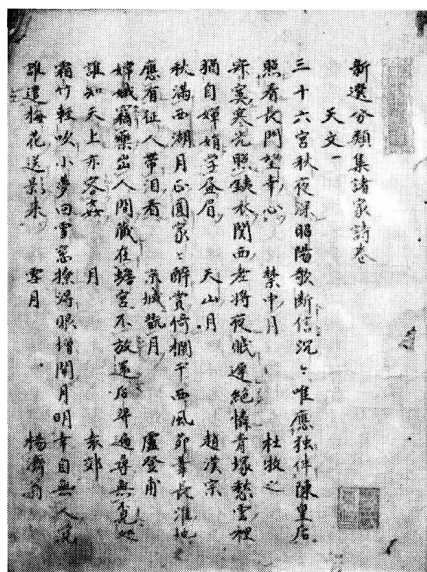 新選分類集諸家詩卷
天文一
三十六宮秋夜深昭陽歌断信沉〻唯應独伴陳皇后
照看長門望幸心 禁中月 杜牧之
寂寞寒光照鉄衣関西老将夜眠遅絶憐青塚愁雲裡
猶自嬋娟学畫眉 天山月 趙漢宗
秋満西湖月正圓家〻酔賞倚欄干西風葦長淮地
應有征人帯泪看 京城翫月 盧登甫
嫦娥竊藥出人間藏在蟾宮不放還后羿遍尋無覓処
誰知天上亦容姦 月 袁郊
霜竹軽吹小夢回雪窓撩得眼増開月明幸自無人覓
誰遣梅花送影来 雪月 楊濟翁